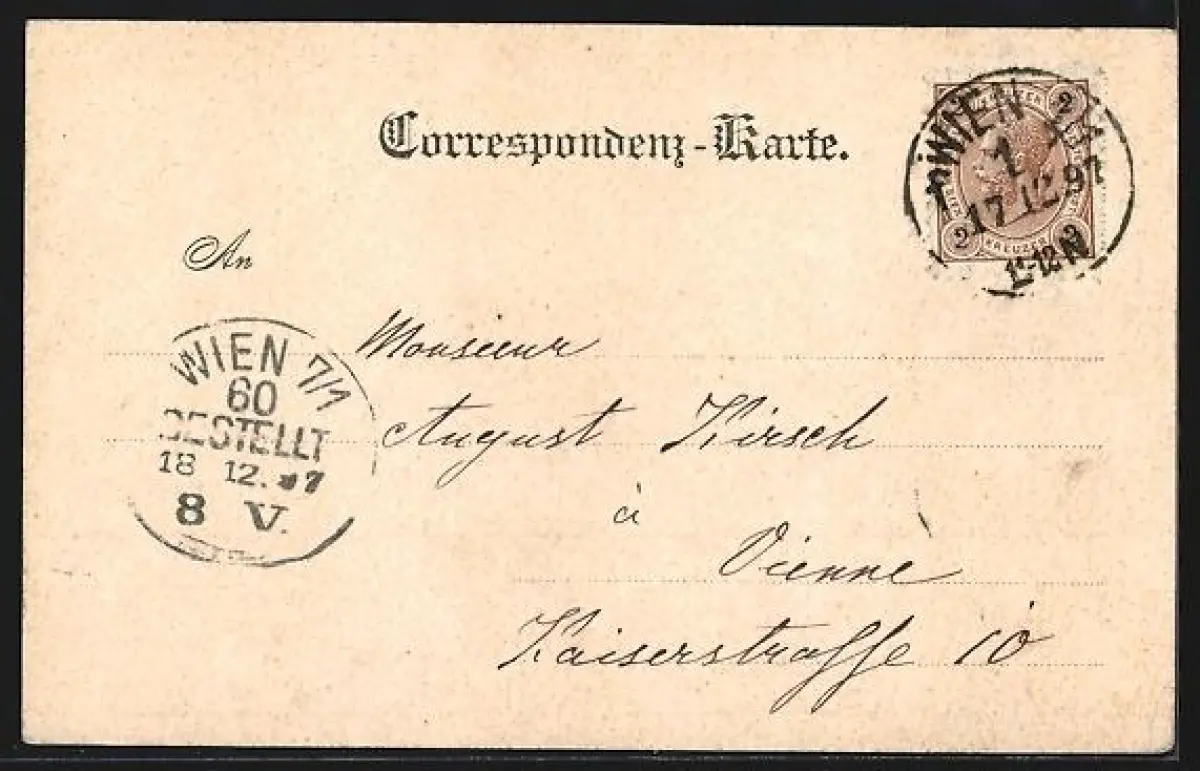 Correspondenz-Karte.
WIEN 1/1
1
17.12.97
11-12N
2 2
2 2
KREUZER
An
WIEN 7/1
60
BESTELLT
18 12. 97
8 V.
Monsieur
August Kirsch
à
Vienne
Kaiserstraße 10